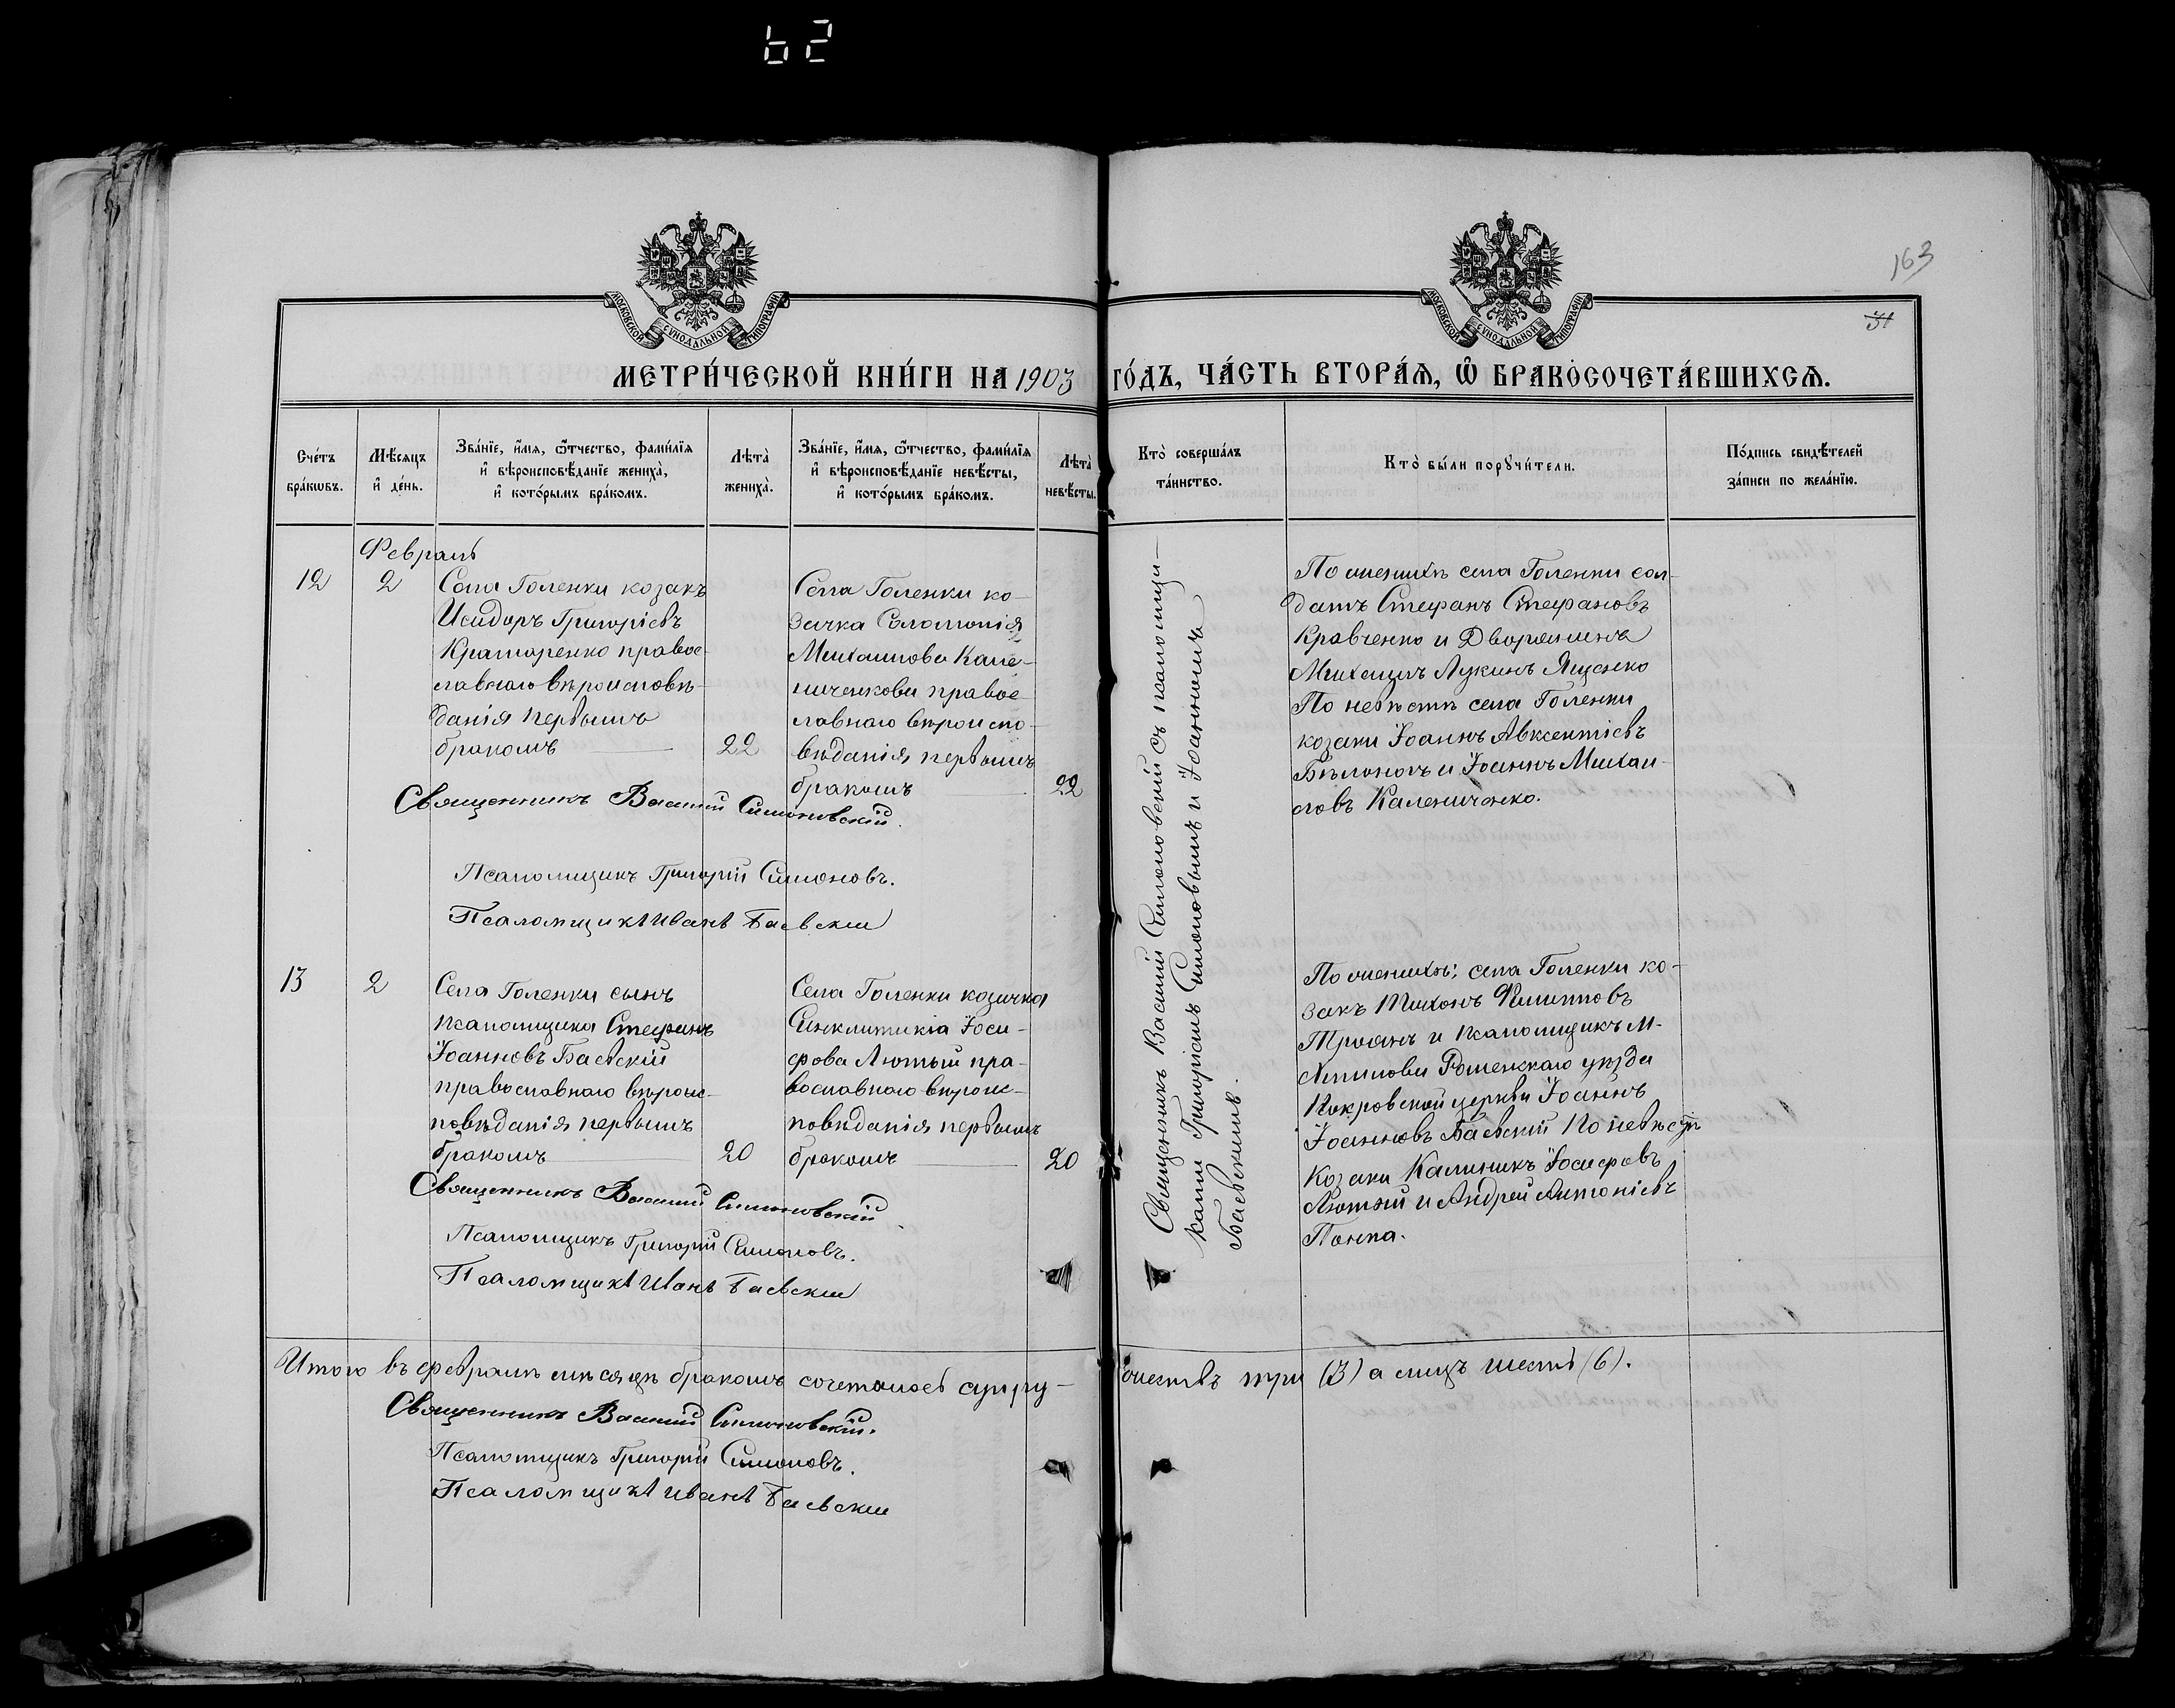 62
163
31
МОСКОВСКОЙ СУНОДАЛЬНОЙ ТИПОГРАФІИ
МОСКОВСКОЙ СУНОДАЛЬНОЙ ТИПОГРАФІИ
МЕТРИ́ЧЕСКОЙ КНИ́ГИ НА 1903 ГО́ДЪ, ЧА́СТЬ ВТОРА́Я, Ѿ БРАКОСОЧЕТА́ВШИХСѦ.
Сче́тъ бра́кѡвъ.
Мѣ́сяцъ и҆ де́нь.
Зва́нїе, и҆́мѧ, ѻ҆́тчество, фами́лїѧ
и҆ вѣроисповѣ́данїе жениха̀,
и҆ кото́рымъ бра́комъ.
Лѣта̀ жениха̀.
Зва́нїе, и҆́мѧ, ѻ҆́тчество, фами́лїѧ
и҆ вѣроисповѣ́данїе невѣ́сты,
и҆ кото́рымъ бра́комъ.
Лѣта̀ невѣ́сты.
Кто̀ соверша́лъ
та́инство.
Кто̀ бы́ли порꙋчи́тели.
По́дпись свидѣ́телей
за́писи по жела́нїю.
Февраль
12
2
Села Голенки козакъ
Исидоръ Григоріевъ
Крамаренко правос-
лавнаго вѣроисповѣ-
данія первымъ
бракомъ
22
Села Голенки ко-
зачка Соломонія
Михаилова Кале-
ниченкова правос
лавнаго вѣроиспо-
вѣданія первымъ
бракомъ
22
Священникъ Василій Симоновскій съ псаломщи-
ками Григоріемъ Симоновымъ и Іоанномъ
Баевскимъ.
По женихѣ села Голенки сол-
датъ Стефанъ Стефановъ
Кравченко и Дворянинъ
Михаилъ Лукинъ Ященко
По невѣстѣ села Голенки
козаки Іоаннъ Авксентіевъ
Бѣлоконь и Іоаннъ Михаи-
ловъ Калениченко.
Священникъ Василій Симоновскій.
Псаломщикъ Григорій Симоновъ.
Псаломщикъ Иванъ Баевскій
13
2
Села Голенки сынъ
псаломщика Стефанъ
Іоанновъ Баевскій
православнаго вѣроис-
повѣданія первымъ
бракомъ
20
Села Голенки козачка
Синклитикіа Іоси-
фова Лютый пра-
вославнаго вѣроис-
повѣданія первымъ
бракомъ
20
По женихѣ: села Голенки ко-
закъ Тихонъ Филиповъ
Троянъ и псаломщикъ м.
Роменскаго уѣзда
Покровской церкви Іоаннъ
Іоанновъ Баевскій По невѣстѣ
Козаки Калиникъ Іосифовъ
Лютый и Андрей Антоніевъ
Попка.
Священникъ Василій Симоновскій
Псаломщикъ Григорій Симоновъ.
Псаломщикъ Иванъ Баевскій
Итого въ февралѣ мѣсяцѣ бракомъ сочеталось супру-
жествъ три (3) а лицъ шесть (6).
Священникъ Василій Симоновскій.
Псаломщикъ Григорій Симоновъ.
Псаломщикъ Иванъ Баевскій